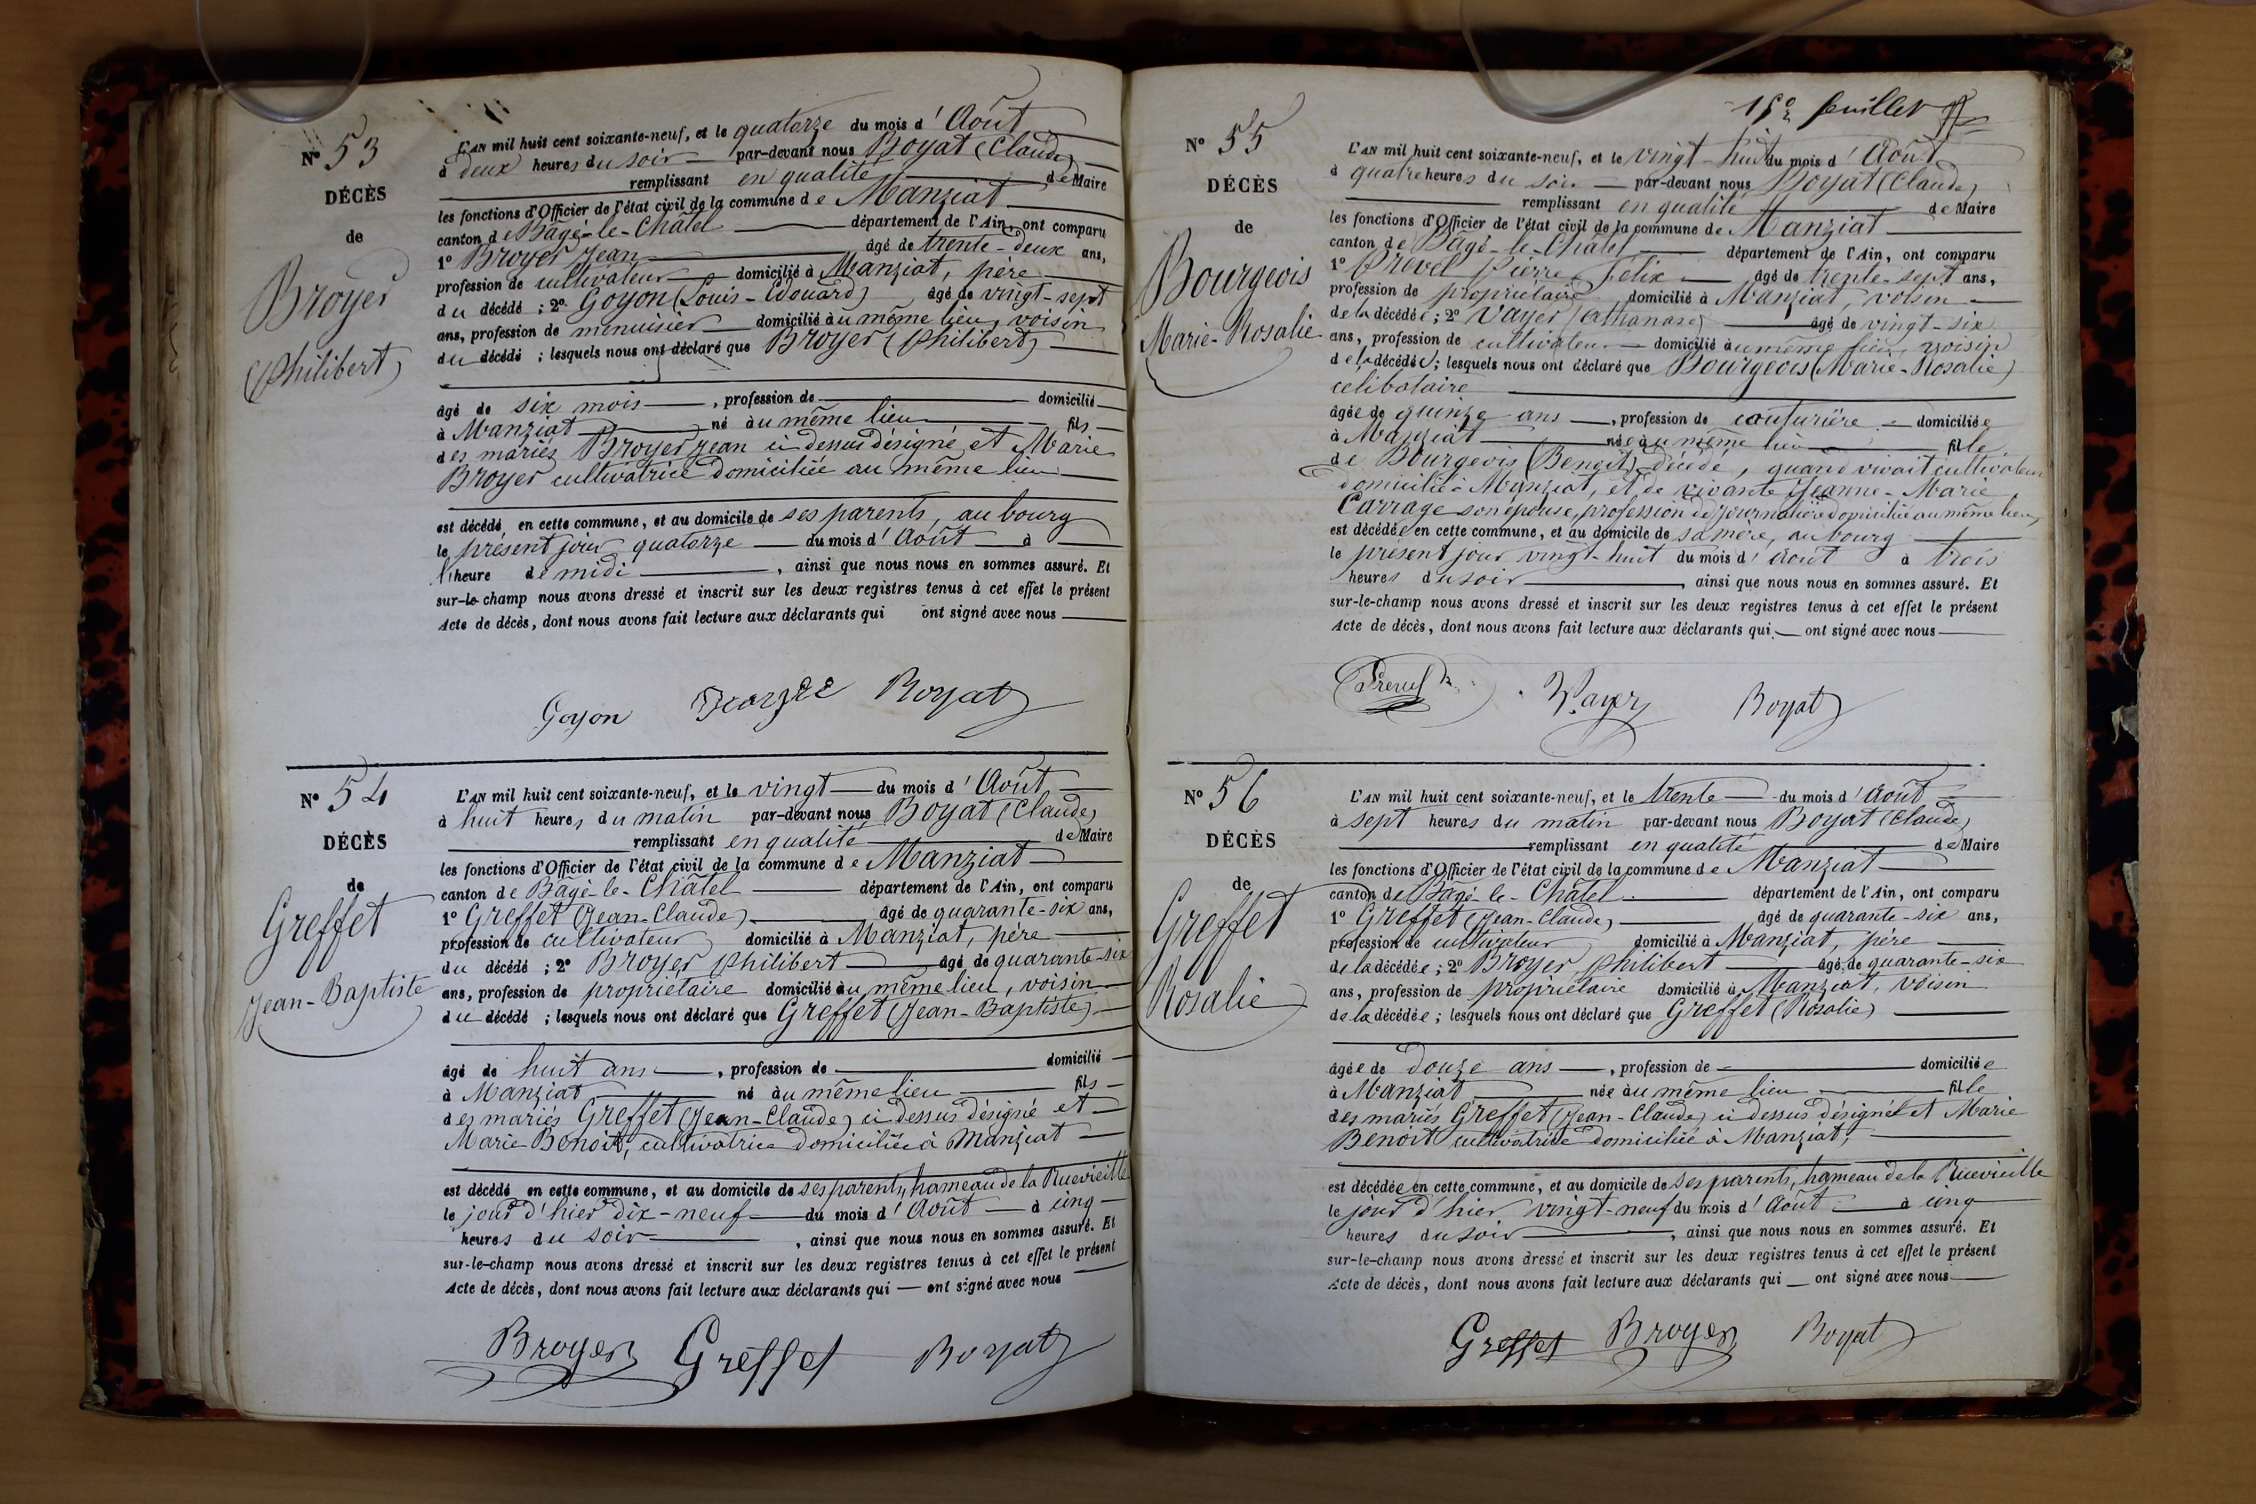 N° 53
DÉCÈS
de
Broyer
(Philibert)
L'AN mil huit cent soixante-neuf, et le quatorze du mois d'Août
à deux heures du soir par-devant nous Boyat (Claude)
remplissant en qualité de Maire
les fonctions d'Officier de l'état civil de la commune de Manziat
canton de Bâgé-le-Châtel département de l'Ain, ont comparu
1° Broyer Jean âgé de trente-deux ans,
profession de cultivateur domicilié à Manziat, père
du décédé ; 2° Goyon (Louis-Edouard) âgé de vingt-sept
ans, profession de menuisier domicilié au même lieu, voisin
du décédé ; lesquels nous ont déclaré que Broyer (Philibert)
âgé de six mois, profession de domicilié
à Manziat né au même lieu fils
des mariés Broyer Jean ci dessus désigné et Marie
Broyer cultivatrice domiciliée au même lieu
est décédé en cette commune, et au domicile de ses parents, au bourg
le présent jour quatorze du mois d'Août à
l'heure de midi, ainsi que nous nous en sommes assuré. Et
sur-le-champ nous avons dressé et inscrit sur les deux registres tenus à cet effet le présent
Acte de décès, dont nous avons fait lecture aux déclarants qui ont signé avec nous
Goyon Boyat
N° 54
DÉCÈS
de
Greffet
Jean-Baptiste
L'AN mil huit cent soixante-neuf, et le vingt du mois d'Août
à huit heures du matin par-devant nous Boyat (Claude)
remplissant en qualité de Maire
les fonctions d'Officier de l'état civil de la commune de Manziat
canton de Bâgé-le-Châtel département de l'Ain, ont comparu
1° Greffet (Jean-Claude) âgé de quarante-six ans,
profession de cultivateur domicilié à Manziat, père
du décédé ; 2° Broyer Philibert âgé de quarante-six
ans, profession de propriétaire domicilié au même lieu, voisin
du décédé ; lesquels nous ont déclaré que Greffet (Jean-Baptiste)
âgé de huit ans, profession de domicilié
à Manziat né au même lieu fils
des mariés Greffet (Jean-Claude) ci dessus désigné et
Marie Benoit, cultivatrice domiciliée à Manziat
est décédé en cette commune, et au domicile de ses parents, hameau de la Ruevieille
le jour d'hier dix-neuf du mois d'Août à cinq
heures du soir, ainsi que nous nous en sommes assuré. Et
sur-le-champ nous avons dressé et inscrit sur les deux registres tenus à cet effet le présent
Acte de décès, dont nous avons fait lecture aux déclarants qui ont signé avec nous
Broyer Greffet Boyat
15e feuillet
N° 55
DÉCÈS
de
Bourgeois
Marie-Rosalie
L'AN mil huit cent soixante-neuf, et le vingt-huit du mois d'Août
à quatre heures du soir par-devant nous Boyat (Claude)
remplissant en qualité de Maire
les fonctions d'Officier de l'état civil de la commune de Manziat
canton de Bâgé-le-Châtel département de l'Ain, ont comparu
1° Prevel Pierre Félix âgé de trente-sept ans,
profession de propriétaire domicilié à Manziat, voisin
de la décédée ; 2° Vayer (Athanase) âgé de vingt-six
ans, profession de cultivateur domicilié au même lieu, voisin
de la décédée ; lesquels nous ont déclaré que Bourgeois (Marie-Rosalie)
celibataire
âgée de quinze ans, profession de couturière domiciliée
à Manziat née au même lieu fille
de Bourgeois (Benoit) décédé, quand vivait cultivateur
domicilié à Manziat, et de vivante Jeanne-Marie
Carrage son épouse, profession de journalière domiciliée au même lieu,
est décédée en cette commune, et au domicile de sa mère, au bourg
le présent jour vingt-huit du mois d'Août à trois
heures du soir, ainsi que nous nous en sommes assuré. Et
sur-le-champ nous avons dressé et inscrit sur les deux registres tenus à cet effet le présent
Acte de décès, dont nous avons fait lecture aux déclarants qui ont signé avec nous
Prevel Vayer Boyat
N° 56
DÉCÈS
de
Greffet
Rosalie
L'AN mil huit cent soixante-neuf, et le trente du mois d'Août
à sept heures du matin par-devant nous Boyat (Claude)
remplissant en qualité de Maire
les fonctions d'Officier de l'état civil de la commune de Manziat
canton de Bâgé-le-Châtel département de l'Ain, ont comparu
1° Greffet (Jean-Claude) âgé de quarante-six ans,
profession de cultivateur domicilié à Manziat, père
de la décédée ; 2° Broyer Philibert âgé de quarante-six
ans, profession de propriétaire domicilié à Manziat, voisin
de la décédée ; lesquels nous ont déclaré que Greffet (Rosalie)
âgée de douze ans, profession de domiciliée
à Manziat née au même lieu fille
des mariés Greffet (Jean-Claude) ci dessus désigné et Marie
Benoit cultivatrice domiciliée à Manziat,
est décédée en cette commune, et au domicile de ses parents, hameau de la Ruevieille
le jour d'hier vingt-neuf du mois d'Août à cinq
heures du soir, ainsi que nous nous en sommes assuré. Et
sur-le-champ nous avons dressé et inscrit sur les deux registres tenus à cet effet le présent
Acte de décès, dont nous avons fait lecture aux déclarants qui ont signé avec nous
Greffet Broyer Boyat